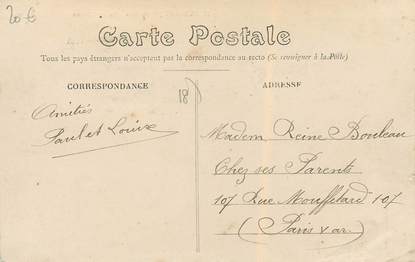 20 €
Carte Postale
Tous les pays étrangers n'acceptent pas la correspondance au recto (Se renseigner à la Poste)
CORRESPONDANCE
18
ADRESSE
Amitiés
Paul et Louise
Madem Reine Bouleau
Chez ses Parents
107 Rue Mouffetard 107
(Paris